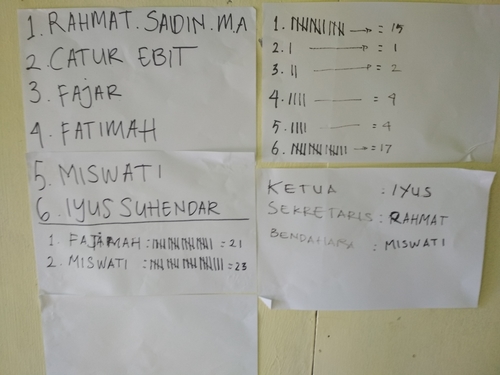 1. RAHMAT. SAIDIN. M.A
2. CATUR EBIT
3. FAJAR
4. FATIMAH
5. MISWATI
6. IYUS SUHENDAR
1. FATIMAH : = 21
2. MISWATI : = 23
1. = 15
2. = 1
3. = 2
4. = 4
5. = 4
6. = 17
KETUA : IYUS
SEKRETARIS : RAHMAT
BENDAHARA : MISWATI